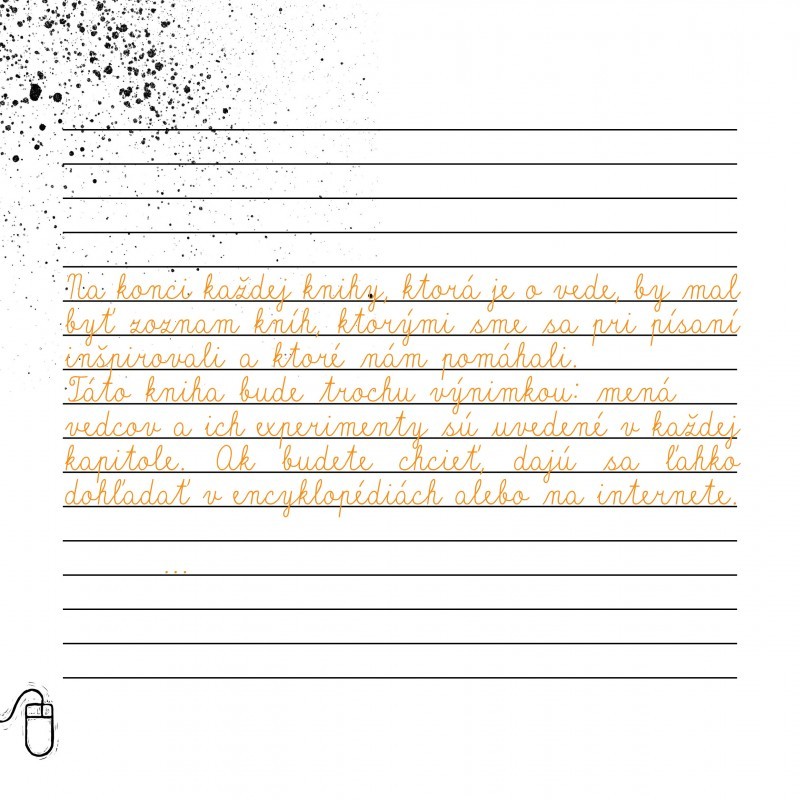 Na konci každej knihy, ktorá je o vede, by mal
byť zoznam kníh, ktorými sme sa pri písaní
inšpirovali a ktoré nám pomáhali.
Táto kniha bude trochu výnimkou: mená
vedcov a ich experimenty sú uvedené v každej
kapitole. Ak budete chcieť, dajú sa ľahko
dohľadať v encyklopédiách alebo na internete.
...